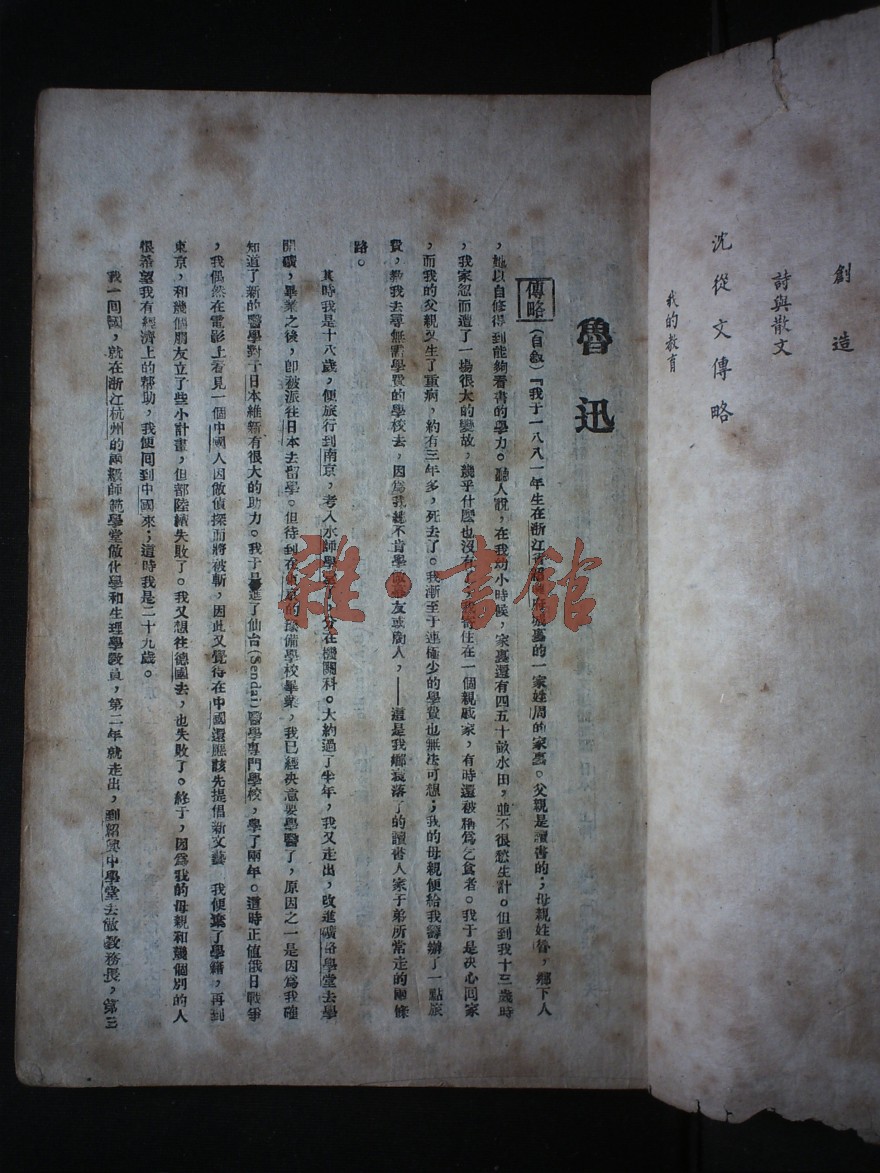 創造
詩與散文
沈從文傳略
我的教育
魯迅
傳略(自敘)『我于一八八一年生在浙江省紹興府城裏的一家姓周的家裏。父親是讀書的；母親姓魯，鄉下人
，她以自修得到能夠看書的學力。聽人說，在我幼小時候，家裏還有四五十畝水田，並不很愁生計。但到我十三歲時
，我家忽而遭了一場很大的變故，幾乎什麼也沒有了；我寄住在一個親戚家，有時還被稱爲乞食者。我于是决心回家
，而我的父親又生了重病，約有三年多，死去了。我漸至于連極少的學費也無法可想；我的母親便給我籌辦了一點旅
費，敎我去尋無需學費的學校去，因爲我總不肯學做幕友或商人，——這是我鄉衰落了的讀書人家子弟所常走的兩條
路。
其時我是十八歲，便旅行到南京，考入水師學堂了，分在機關科。大約過了半年，我又走出，改進礦路學堂去學
開礦，畢業之後，卽被派往日本去留學。但待到在東京的豫備學校畢業，我已經决意要學醫了，原因之一是因爲我確
知道了新的醫學對于日本維新有很大的助力。我于是進了仙台(Sendai)醫學專門學校，學了兩年。這時正值俄日戰爭
，我偶然在電影上看見一個中國人因做偵探而將被斬，因此又覺得在中國還應該先提倡新文藝 我便棄了學籍，再到
東京，和幾個朋友立了些小計畫，但都陸續失敗了。我又想往德國去，也失敗了。終于，因爲我的母親和幾個別的人
很希望我有經濟上的幫助，我便回到中國來；這時我是二十九歲。
我一回國，就在浙江杭州的兩級師範學堂做化學和生理學敎員，第二年就走出，到紹興中學堂去做敎務長，第三
雜·書館